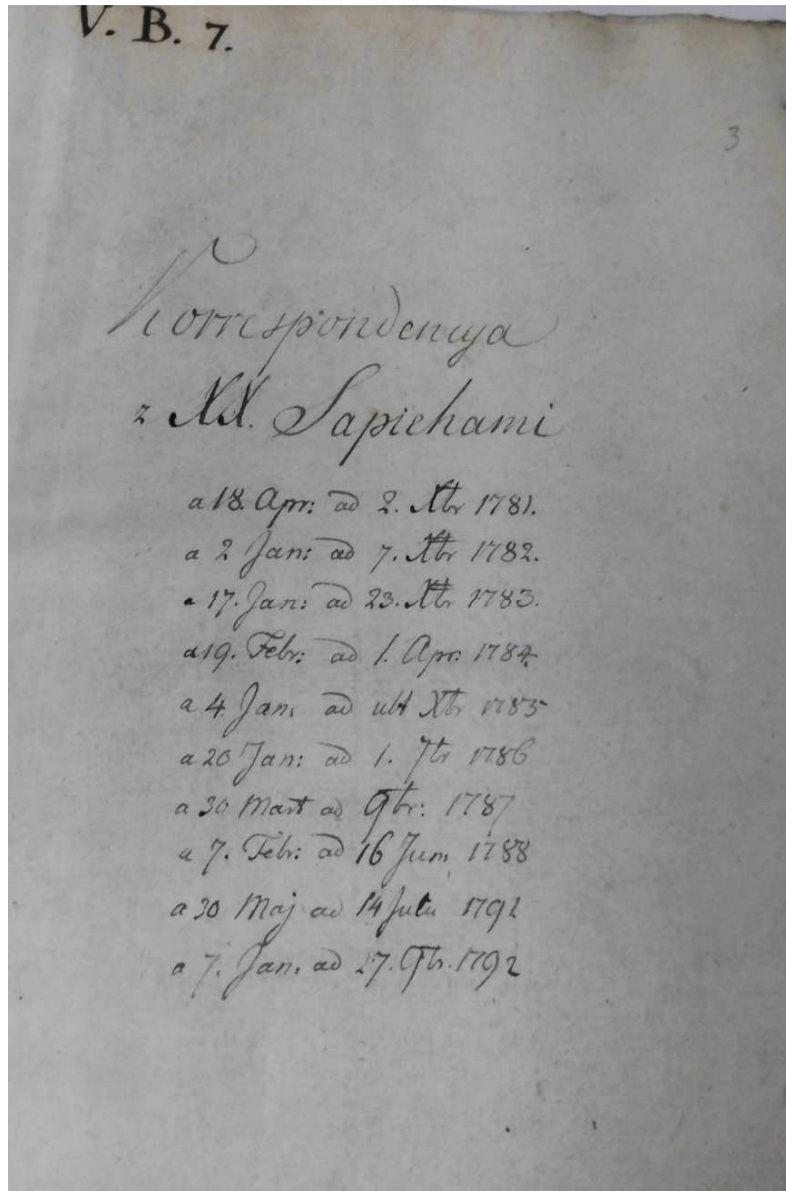 V. B. 7.
3
Korrespondencya
z XX. Sapiehami
a 18. Apr: ad 2. Xbr 1781.
a 2 Jan: ad 7. Xbr 1782.
a 17. Jan: ad 23. Xbr 1783.
a 19. Febr: ad 1. Apr: 1784.
a 4. Jan: ad ult Xbr 1785
a 20 Jan: ad 1. 7br 1786
a 30 Mart ad 9br: 1787
a 7. Febr: ad 16 Jun 1788
a 30 Maj ad 14 Julii
a 7. Jan. ad 27. 9br. 1792